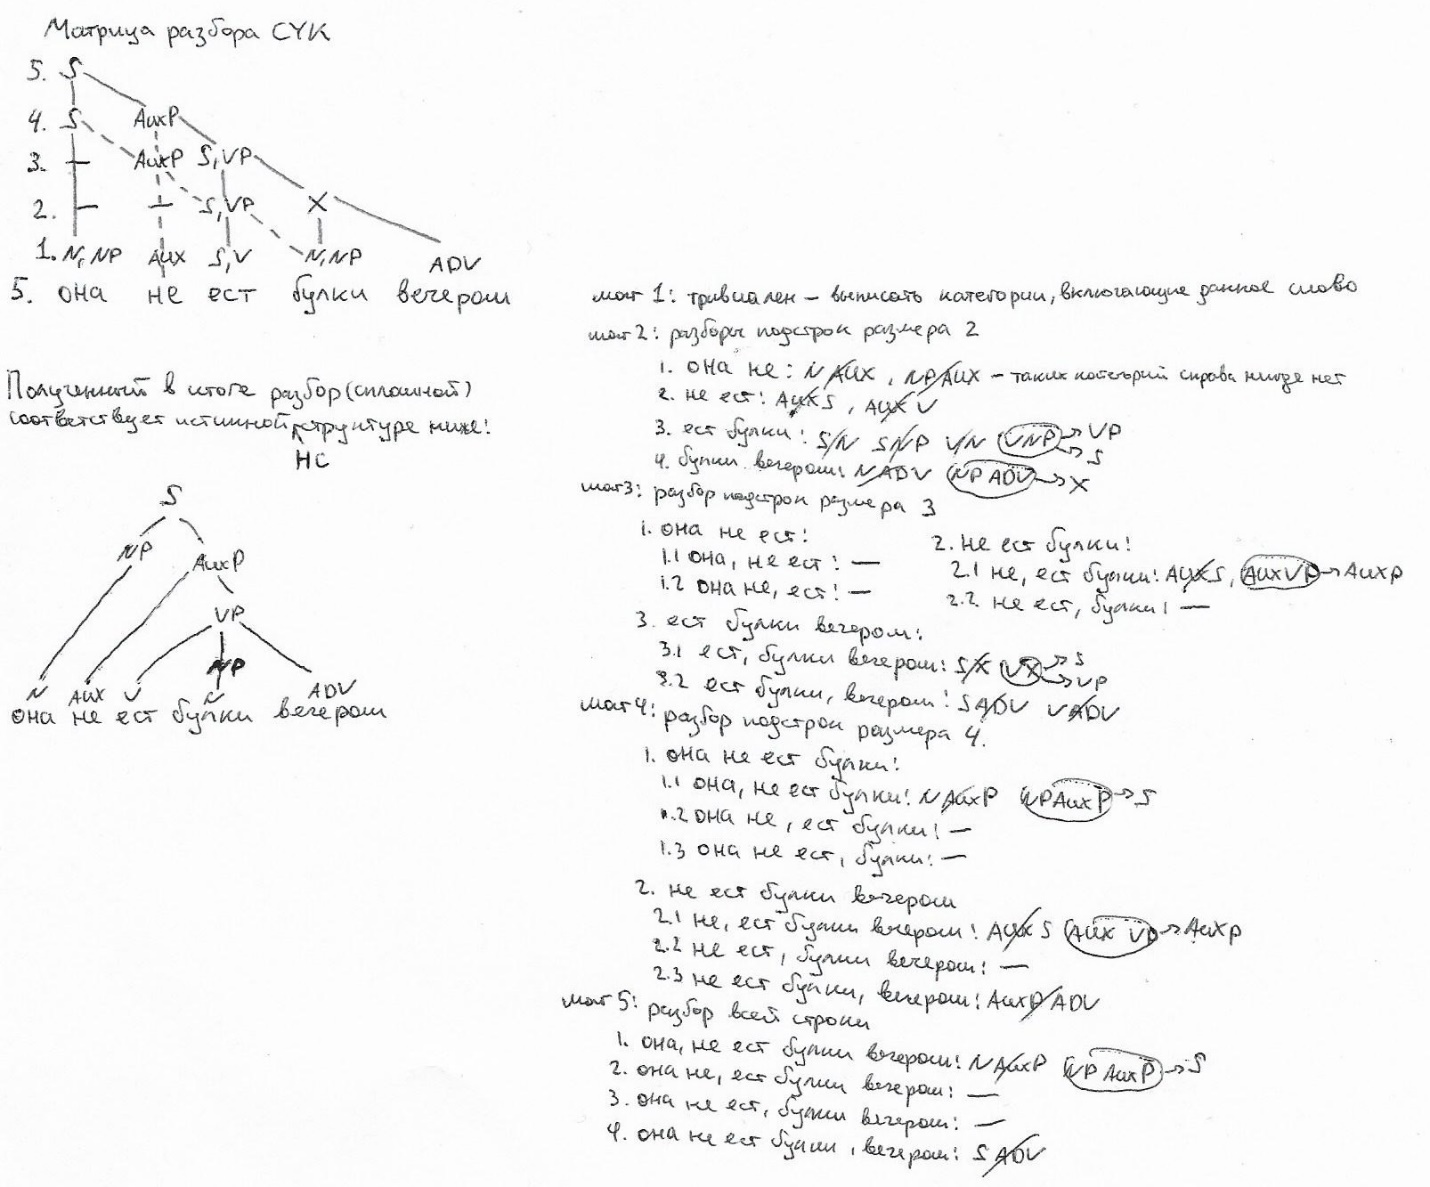 Матрица разбора CYK
5. S
4. S AuxP
3. — AuxP S,VP
2. — — S,VP X
1. N,NP AUX S,V N,NP ADV
5. она не ест булки вечером
Полученный в итоге разбор (сплошной)
соответствует истинной структуре ниже:
НС
S
NP AuxP
VP
NP
N AUX V N ADV
она не ест булки вечером
шаг 1: тривиален – выписать категории, включающие данное слово
шаг 2: разборы подстрок размера 2
1. она не: N AUX, NP AUX – таких категорий справа нигде нет
2. не ест: AUX S, AUX V
3. ест булки: S N S NP V N V NP → VP
→ S
4. булки вечером: N ADV NP ADV → X
шаг 3: разбор подстрок размера 3
1. она не ест:
1.1 она, не ест: —
1.2 она не, ест: —
2. не ест булки:
2.1 не, ест булки: AUX S, AUX VP → AuxP
2.2 не ест, булки: —
3. ест булки вечером:
3.1 ест, булки вечером: S X V X → S
→ VP
3.2 ест булки, вечером: S ADV V ADV
шаг 4: разбор подстрок размера 4.
1. она не ест булки:
1.1 она, не ест булки: N AuxP NP AuxP → S
1.2 она не, ест булки: —
1.3 она не ест, булки: —
2. не ест булки вечером
2.1 не, ест булки вечером: AUX S AUX VP → AuxP
2.2 не ест, булки вечером: —
2.3 не ест булки, вечером: AuxP ADV
шаг 5: разбор всей строки
1. она, не ест булки вечером: N AuxP NP AuxP → S
2. она не, ест булки вечером: —
3. она не ест, булки вечером: —
4. она не ест булки, вечером: S ADV